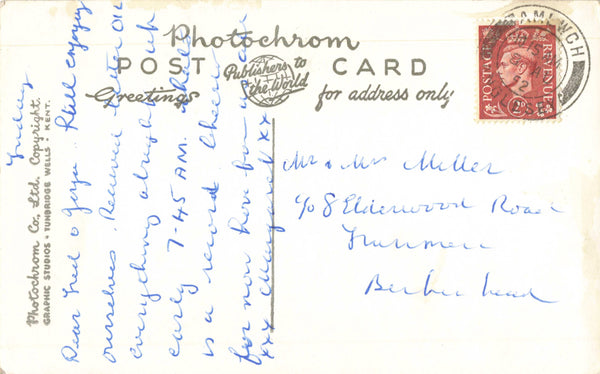 Photochrom
POST CARD
Publishers to
the World
Greetings
for address only
Photochrom Co., Ltd. Copyright.
GRAPHIC STUDIOS • TUNBRIDGE WELLS • KENT.
POSTAGE REVENUE
AMLWCH
Friday
Dear Fred &
Still enjoying
ourselves. Received letter OK
everything alright up
early 7-45 AM.
is a record. Cheerio
for now from
xxx Margaret xx
Mr & Mrs Miller
c/o 8 Elderwood Road
Tranmere
Birkenhead